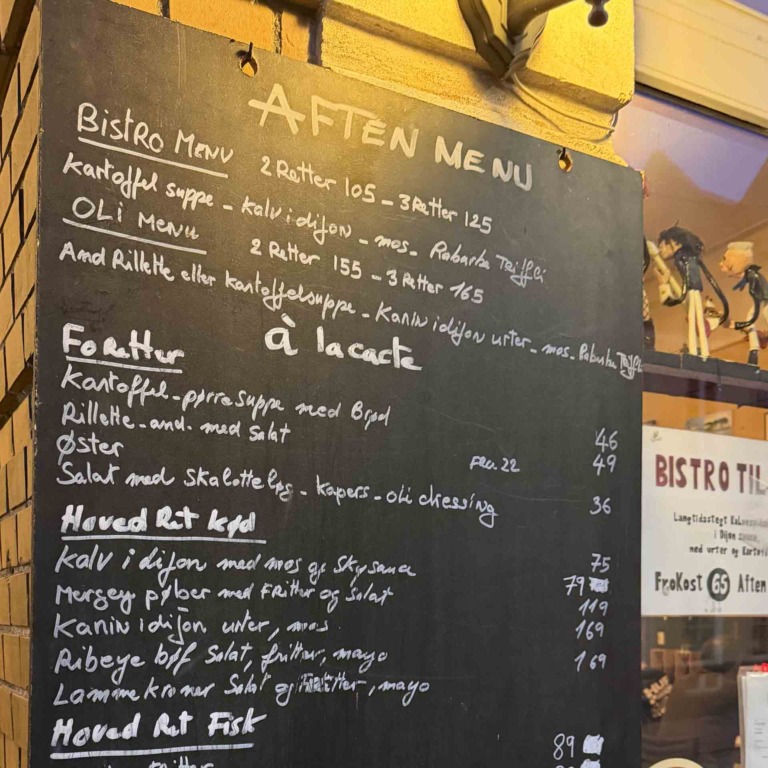 AFTEN MENU
BistRo MENU 2 Retter 105 - 3 Retter 125
Kartoffel suppe - Kalv i dijon - mos - Rabarba Triffli
OLi MENU 2 Retter 155 - 3 Retter 165
And Rillette eller kartoffelsuppe - Kanin i dijon urter - mos - Rabarba Triffli
à la carte
FoRetter
Kartoffel-porresuppe med Brød 46
Rillette-and-med Salat 49
Øster FRA. 22
Salat med Skalotteløg - Kapers - oli dressing 36
Hoved Ret kød
Kalv i dijon med mos og Skysauce 75
Mergez pølser med Fritter og Salat 79
Kanin i dijon urter, mos 119
Ribeye bøf Salat, fritter, mayo 169
Lammekroner Salat og Fritter, mayo 169
Hoved Ret Fisk
89
BISTRO TIL
Langtidsstegt
i Dijon
med urter og
FroKost 65 Aften